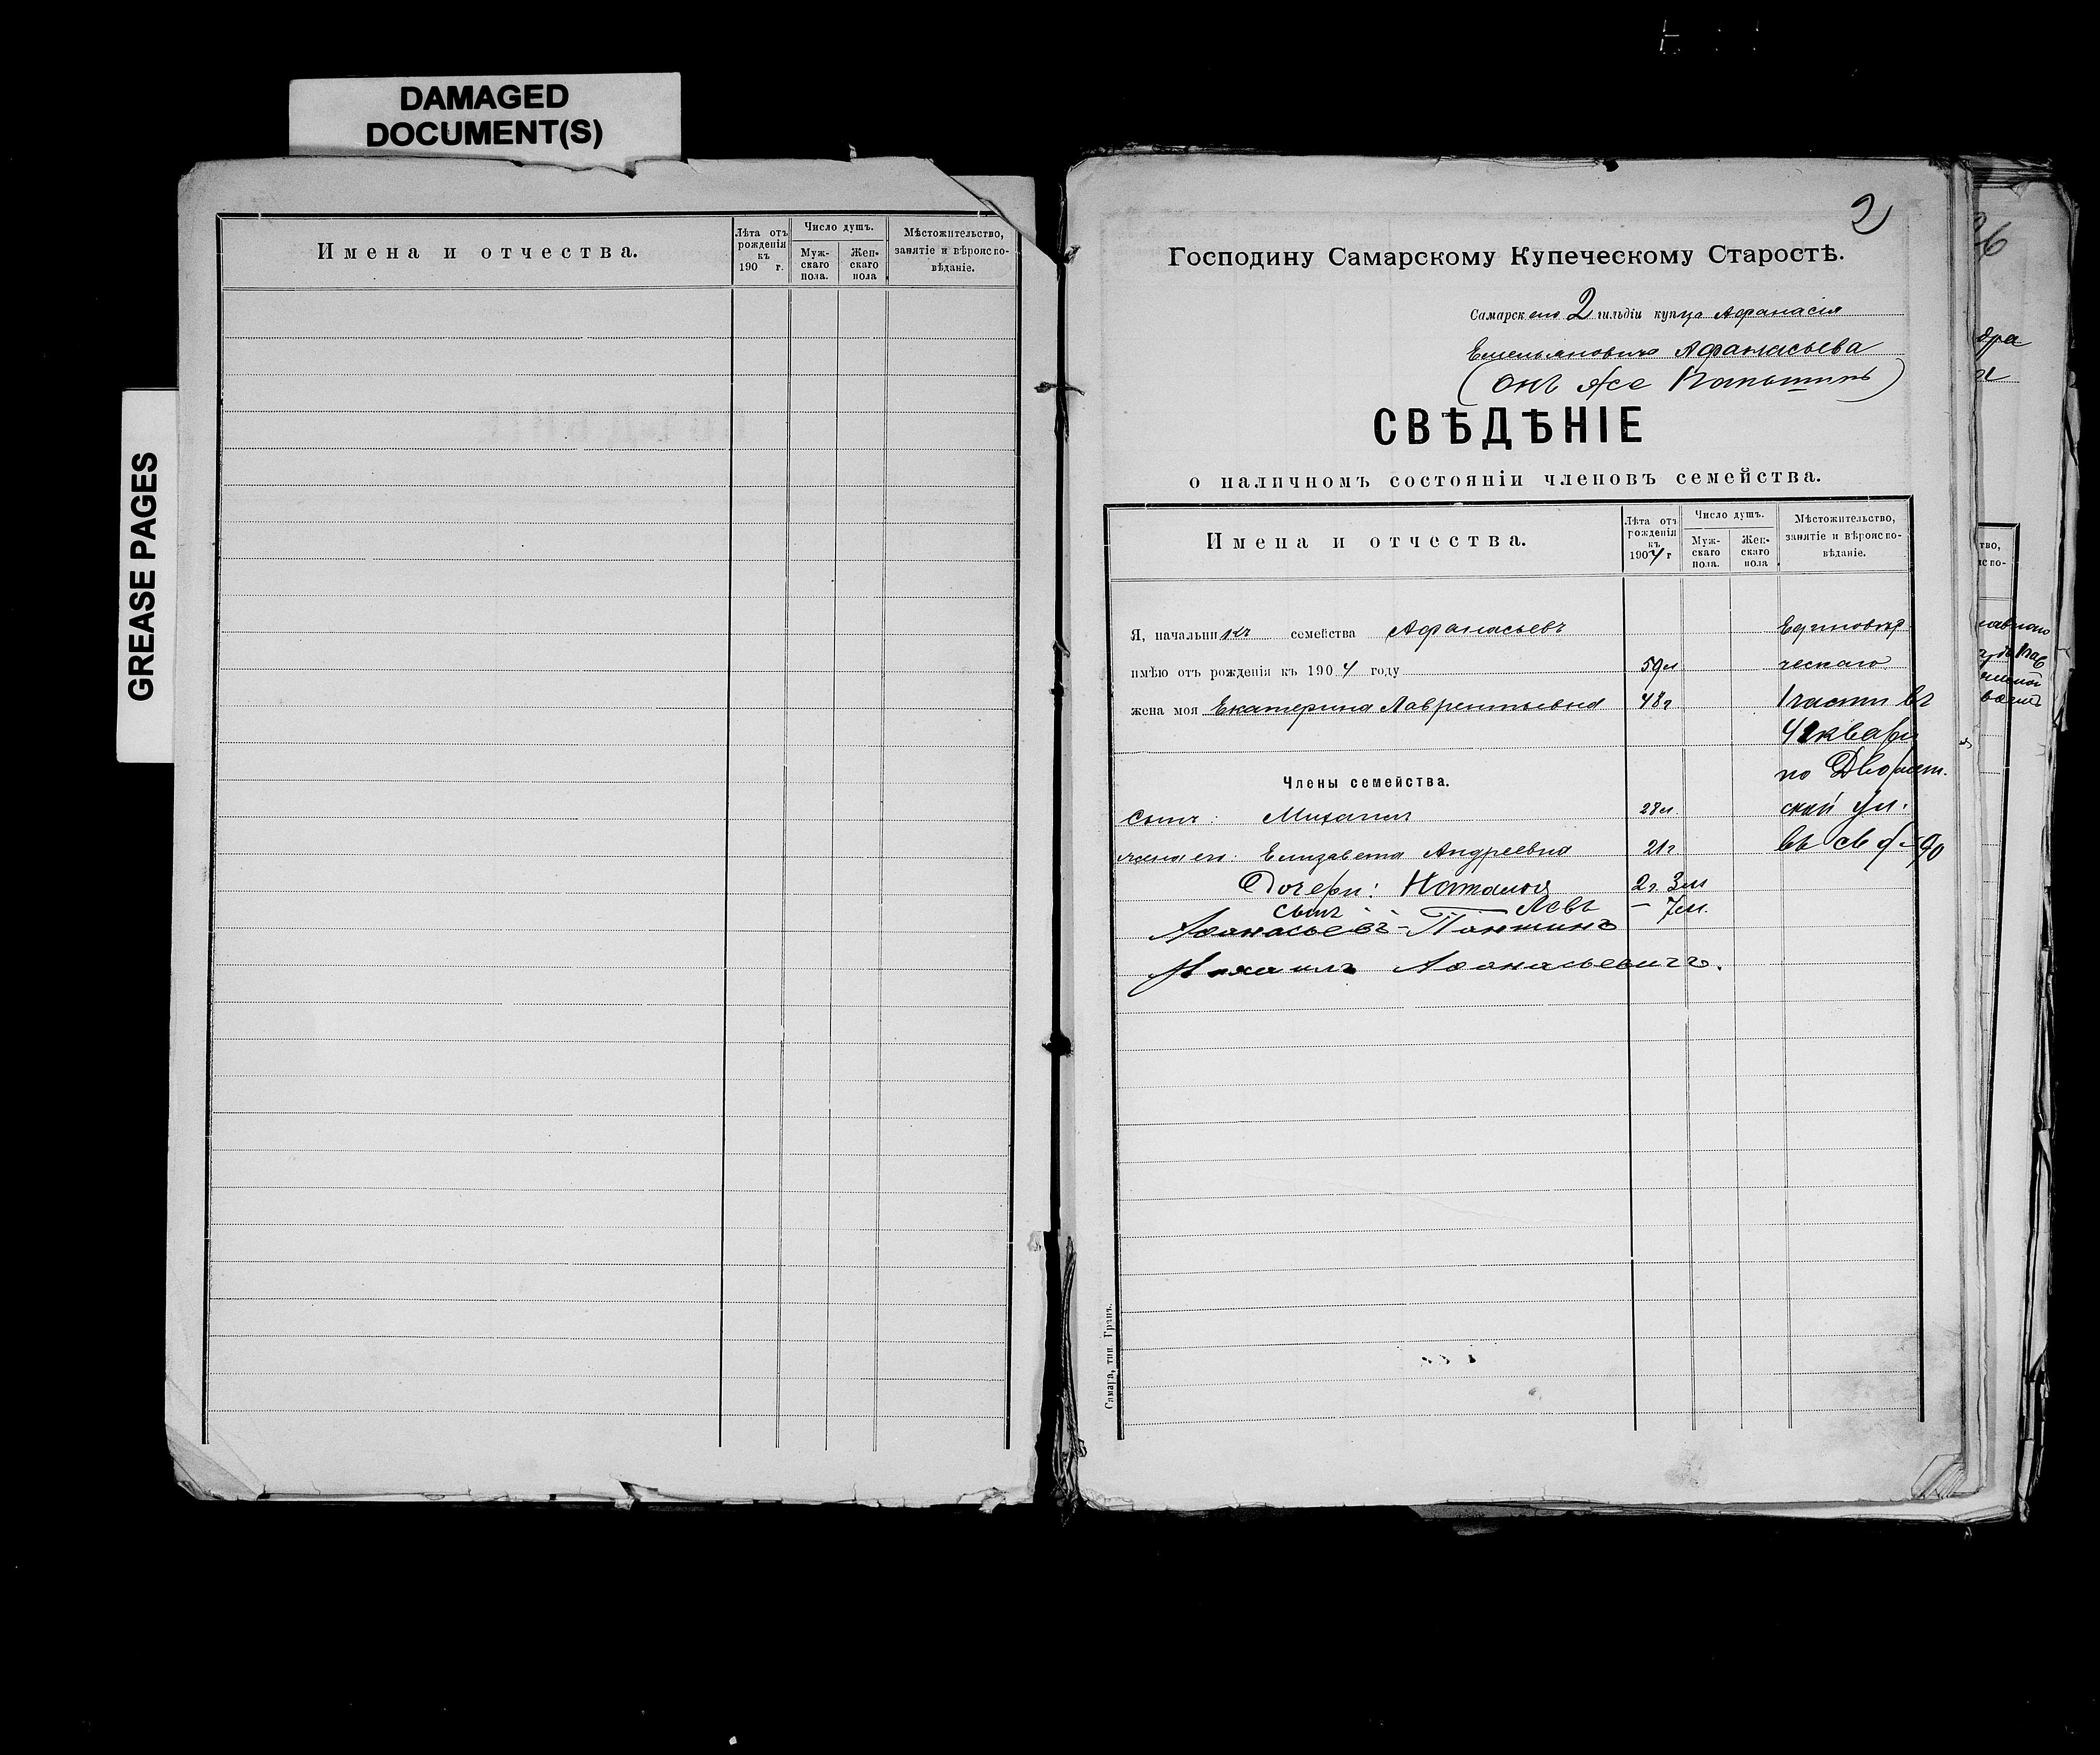 DAMAGED
DOCUMENT(S)
GREASE PAGES
Имена и отчества.
Лѣта отъ рожденія къ 190 г.
Число душъ.
Муж-скаго пола.
Жен-скаго пола
Мѣстожительство, занятіе и вѣроиспо-вѣданіе.
2
Господину Самарскому Купеческому Старостѣ.
Самарскаго 2 гильдіи купца Афанасія
Емельяновича Афанасьева
(онъ же Паньшинъ)
СВѢДѢНІЕ
о наличномъ состояніи членовъ семейства.
Имена и отчества.
Лѣта отъ рожденія къ 1904 г
Число душъ.
Муж-скаго пола.
Жен-скаго пола
Мѣстожительство, занятіе и вѣроиспо-вѣданіе.
Я, начальникъ семейства Афанасьевъ Единовѣр
имѣю отъ рожденія къ 1904 году 59л ческаго
жена моя Екатерина Лаврентьевна 48г 1 части въ
квар
по Дворян.
Члены семейства.
сынъ: Михаилъ 28л. ской ул.
жена его: Елизавета Андреевна 21г въ
Дочери: Наталья 2г. 3м
сынъ Левъ — 7м.
Афанасьевъ-Паншинъ
Михаилъ Афанасьевичъ.
Самара, тип. Гранъ.